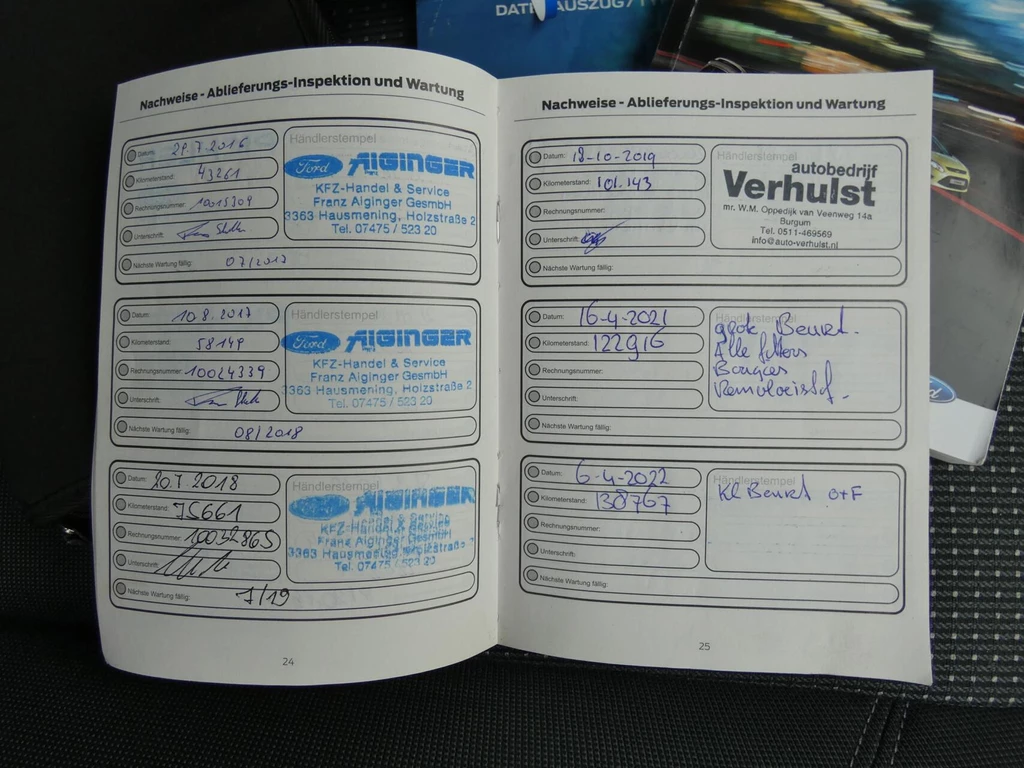 DATENAUSZUG / TY
Nachweise - Ablieferungs-Inspektion und Wartung
Datum: 29.7.2016
Kilometerstand: 43261
Rechnungsnummer: 10015309
Unterschrift:
Nächste Wartung fällig: 07/2017
Händlerstempel
Ford AIGINGER
KFZ-Handel & Service
Franz Aiginger GesmbH
3363 Hausmening, Holzstraße 2
Tel. 07475 / 523 20
Datum: 10.8.2017
Kilometerstand: 58149
Rechnungsnummer: 10024339
Unterschrift:
Nächste Wartung fällig: 08/2018
Händlerstempel
Ford AIGINGER
KFZ-Handel & Service
Franz Aiginger GesmbH
3363 Hausmening, Holzstraße 2
Tel. 07475 / 523 20
Datum: 20.7.2018
Kilometerstand: 75661
Rechnungsnummer: 10032865
Unterschrift:
Nächste Wartung fällig: 7/19
Händlerstempel
AIGINGER
KFZ-Handel & Service
Franz Aiginger GesmbH
3363 Hausmening, Holzstraße 2
Tel. 07475 / 523 20
24
Nachweise - Ablieferungs-Inspektion und Wartung
Datum: 18-10-2019
Kilometerstand: 101.143
Rechnungsnummer:
Unterschrift:
Nächste Wartung fällig:
Händlerstempel
autobedrijf
Verhulst
mr. W.M. Oppedijk van Veenweg 14a
Burgum
Tel. 0511-469569
info@auto-verhulst.nl
Datum: 16-4-2021
Kilometerstand: 122916
Rechnungsnummer:
Unterschrift:
Nächste Wartung fällig:
Händlerstempel
grote Beurt.
Alle filters
Bougies
Remvloeistof.
Datum: 6-4-2022
Kilometerstand: 138767
Rechnungsnummer:
Unterschrift:
Nächste Wartung fällig:
Händlerstempel
Kl Beurt O+F
25
Ford